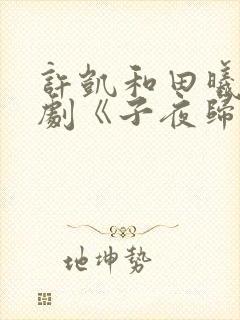 許凱和田曦
劇《子夜歸
地坤勢